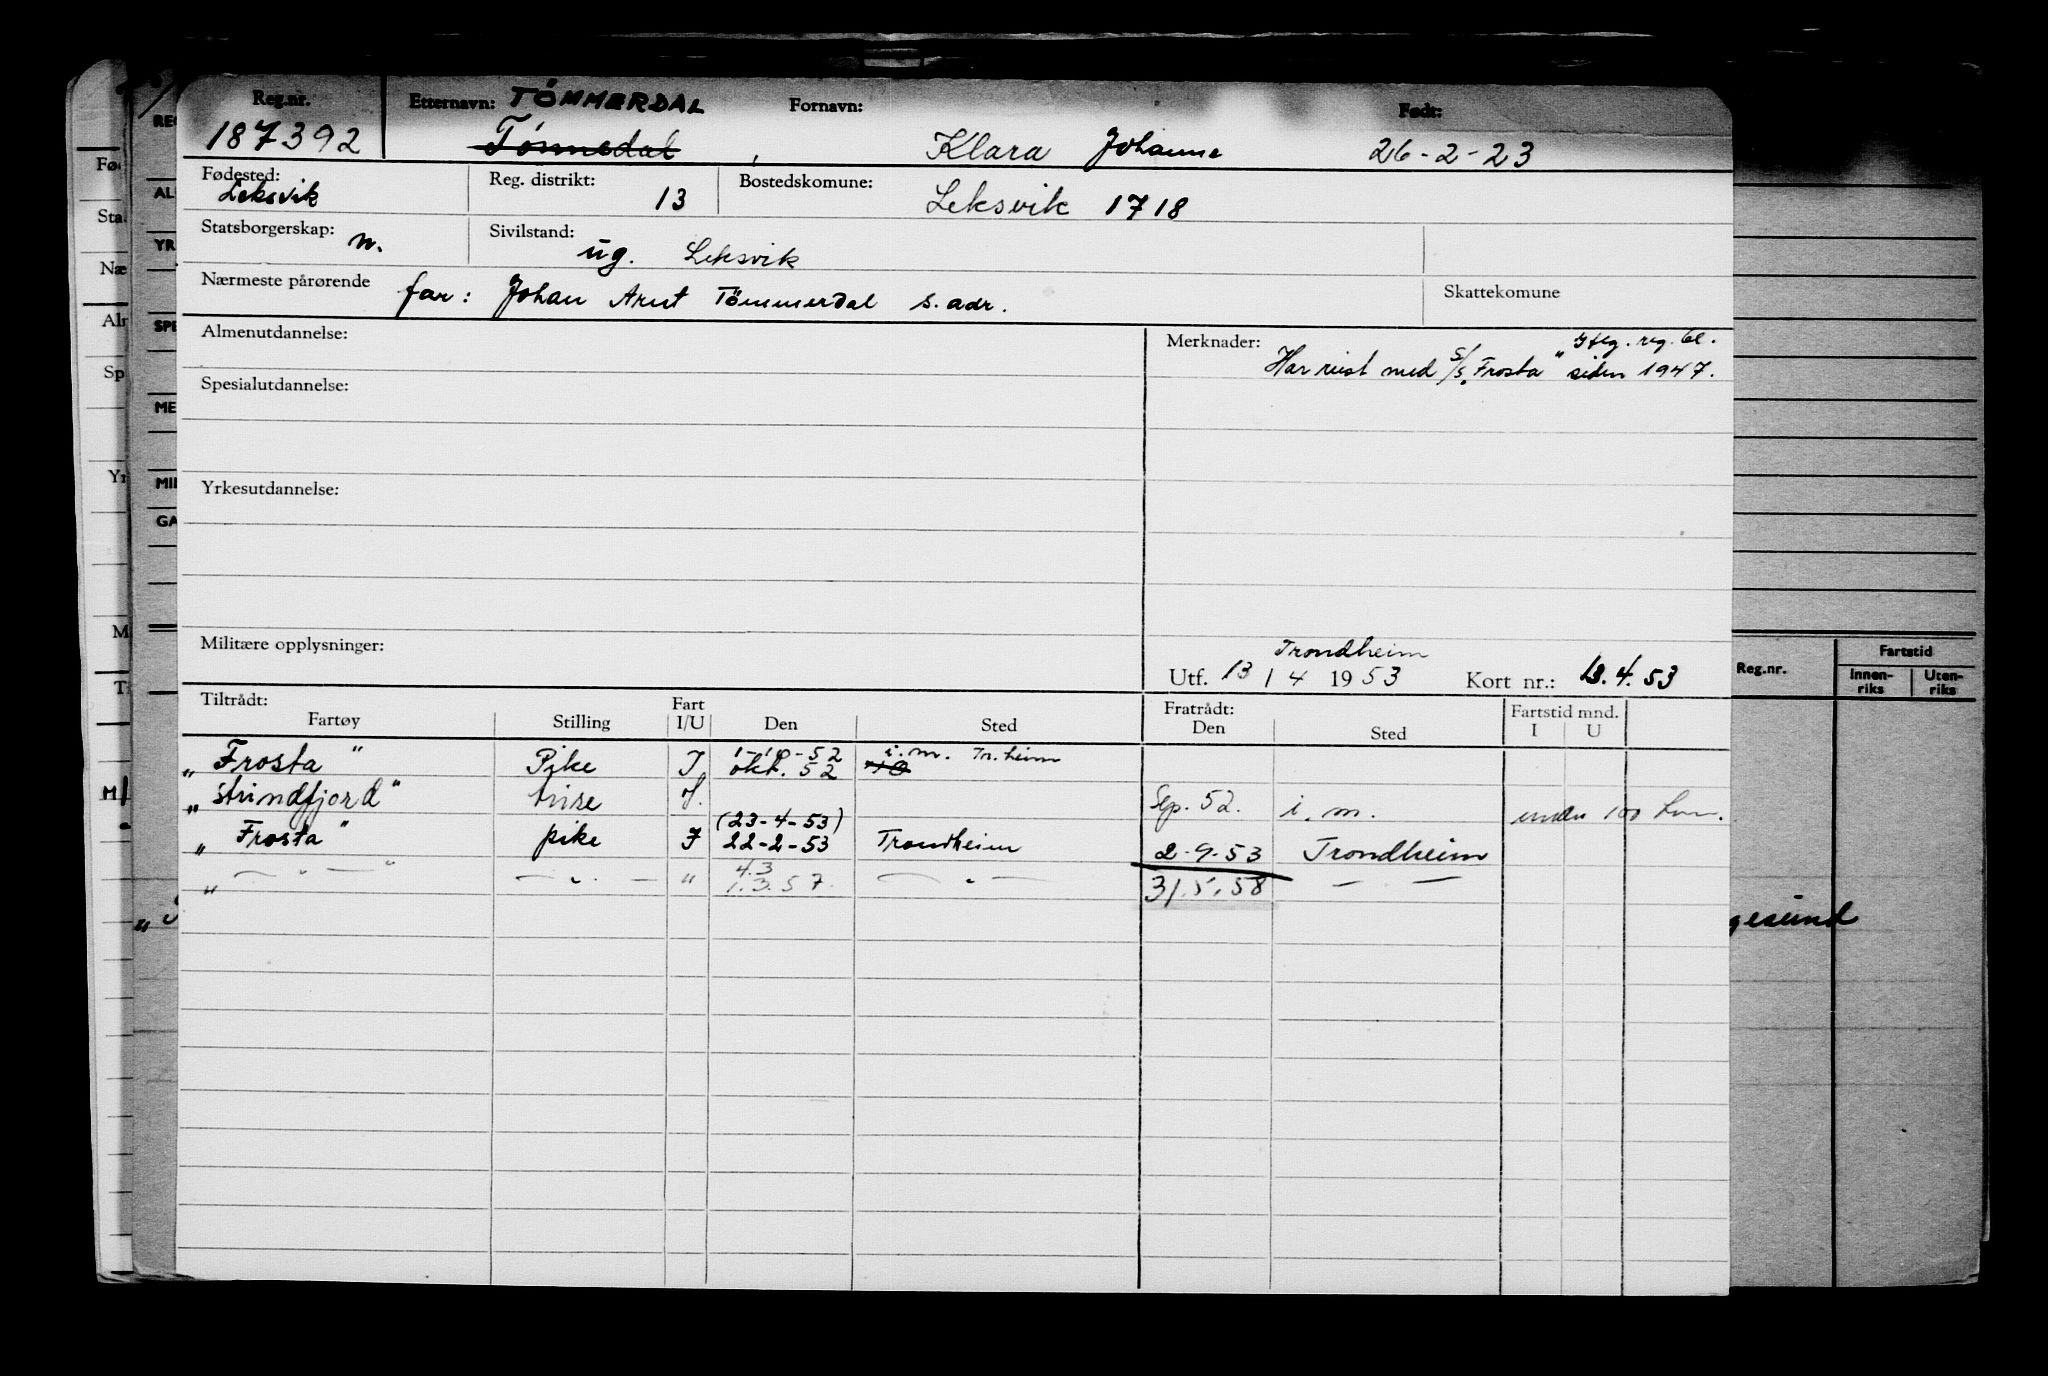 Reg.nr. Etternavn: TÖMMERDAL Fornavn: Født:
187392 Tömmedal, Klara Johanne 26-2-23
Fødested: Reg. distrikt: 13 Bostedskomune: Leksvik 1718
Leksvik
Statsborgerskap: n. Sivilstand: ug. Leksvik
Nærmeste pårørende far: Johan Arnt Tömmerdal s. adr. Skattekomune
Almenutdannelse: Merknader: iflg. reg. bl.
Har reist med S/S „Frosta" siden 1947.
Spesialutdannelse:
Yrkesutdannelse:
Militære opplysninger: Trondheim
Utf. 13 / 4 1953 Kort nr.: 13.4.53
Tiltrådt: Fart Fratrådt: Fartstid mnd.
Fartøy Stilling I/U Den Sted Den Sted I U
„Frosta" Pike I 1-10-52 i.m. Tr.heim
okt. 52
„Strindfjord" trise Sep. 52. i.m. under 100
(23-4-53)
„Frosta" pike I 22-2-53 Trondheim 2-9-53 Trondheim
4.3
„ — " — " — " — " 1.3.57. — " — 31.5.58 — " —
RE
AL
YR
SPE
ME
MI
GA
Fø
Sta
Næ
Al
Sp
Yr
M
T
M
Reg.nr. Fartstid
Innen-riks Uten-riks
gesund